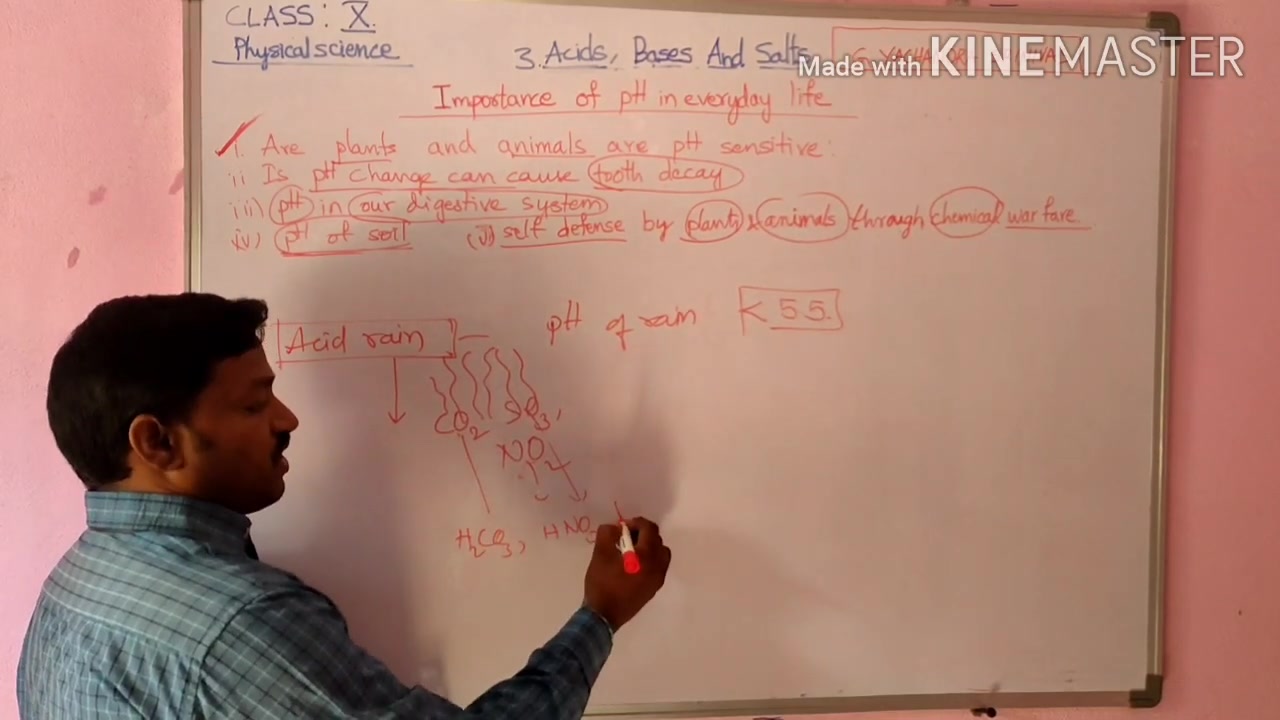 CLASS: X.
Physical science
3. Acids, Bases And Salts
Made with KINEMASTER
Importance of pH in everyday life
i. Are plants and animals are pH sensitive:
ii Is pH change can cause tooth decay
iii) pH in our digestive system
iv) pH of soil (v) self defense by plants & animals through chemical war fare.
Acid rain — pH of rain < 5.5.
CO2 SO3,
NO2
H2CO3, HNO3